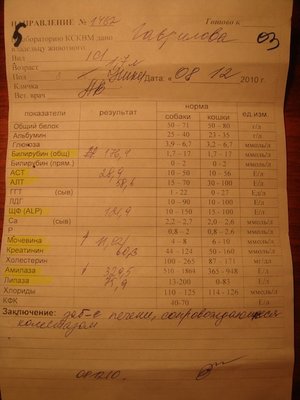 НАПРАВЛЕНИЕ № 1462 Готово к
5 лабораторию КСКВМ дано Гаврилова 03
владельцу животного
Вид
Возраст 17л
Пол Дата: «08 12 2010 г.
Кличка
Вет. врач
показатели результат норма ед.изм.
собаки кошки
Общий белок 50 – 71 50 – 80 г/л
Альбумин 25 – 40 25 – 35 г/л
Глюкоза 3,9 – 6,7 3,2 – 6,7 ммоль/л
Билирубин (общ) 176,9 1,7 – 17 1,7 – 17 ммоль/л
Билирубин (прям.) 0 – 2 0 – 2 ммоль/л
АСТ 28,9 10 – 50 10 – 56 Е/л
АЛТ 58,6 15 – 70 30 – 100 Е/л
ГГТ (сыв) 1 – 22 0 – 27 Е/л
ЛДГ 10 – 90 10 – 100 Е/л
ЩФ (ALP) 10 – 150 15 – 100 Е/л
Ca (сыв) 2,2 – 2,7 2,0 – 2.6 ммоль/л
P 0,8 – 2 0,8 – 2.6 ммоль/л
Мочевина 4 – 8 6 – 10 ммоль/л
Креатинин 44 – 124 50 – 160 ммоль/л
Холестерин 100 – 265 87 – 171 мг/дл
Амилаза 510 – 1864 365 – 948 Е/л
Липаза 13-200 0-83 Е/л
Хлориды 110 – 125 114 – 126 ммоль/л
КФК 40-70 Е/л
Заключение: заб-е печени, сопровождающееся
холестазом
081210.